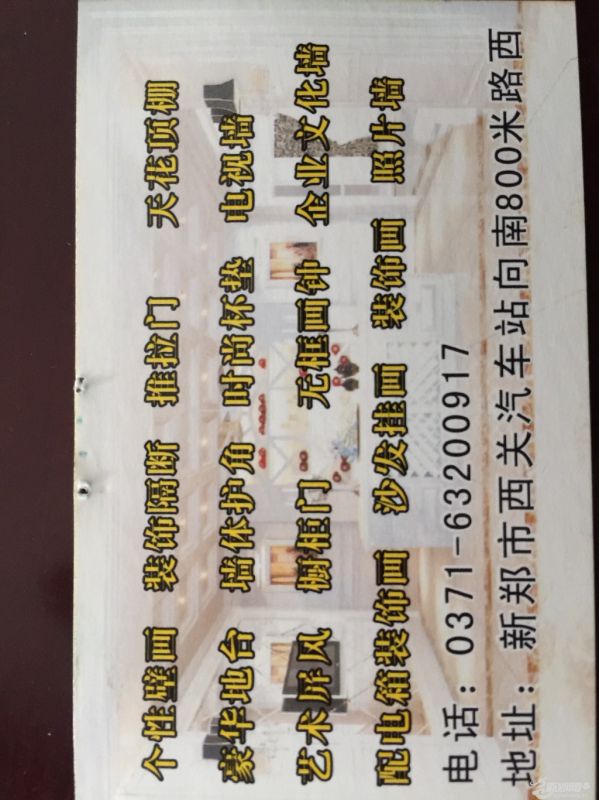 个性壁画 装饰隔断 推拉门 天花顶棚
豪华地台 墙体护角 时尚杯垫 电视墙
艺术屏风 橱柜门 无框画钟 企业文化墙
配电箱装饰画 沙发挂画 装饰画 照片墙
电话：0371-63200917
地址：新郑市西关汽车站向南800米路西